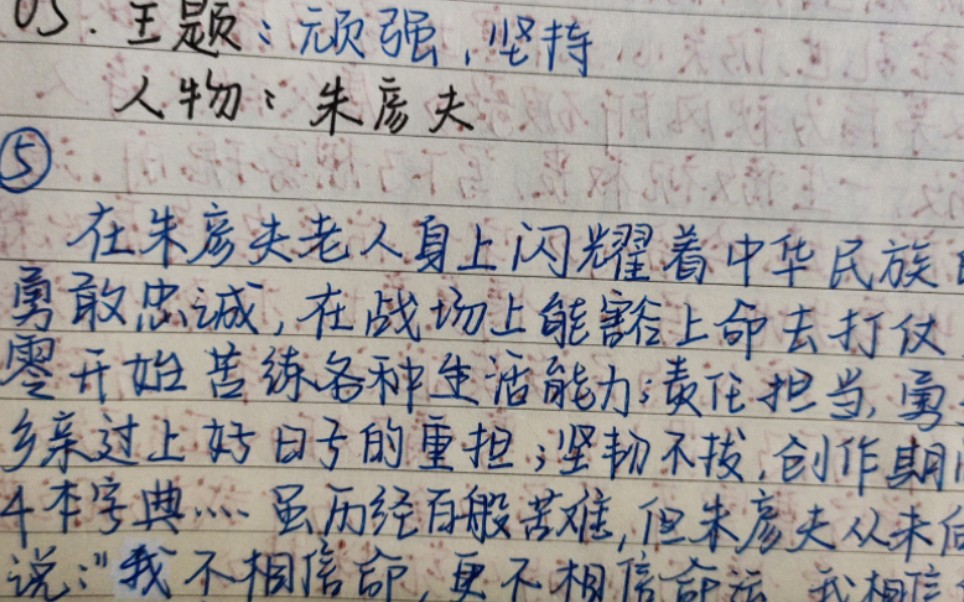 05.主题：顽强，坚持
人物：朱彦夫
⑤
在朱彦夫老人身上闪耀着中华民族
勇敢忠诚，在战场上能豁上命去打仗
零开始苦练各种生活能力；责任担当，勇
乡亲过上好日子的重担；坚韧不拔，创作期
4本字典……虽历经百般苦难，但朱彦夫从未向
说："我不相信命，更不相信命运，我相信